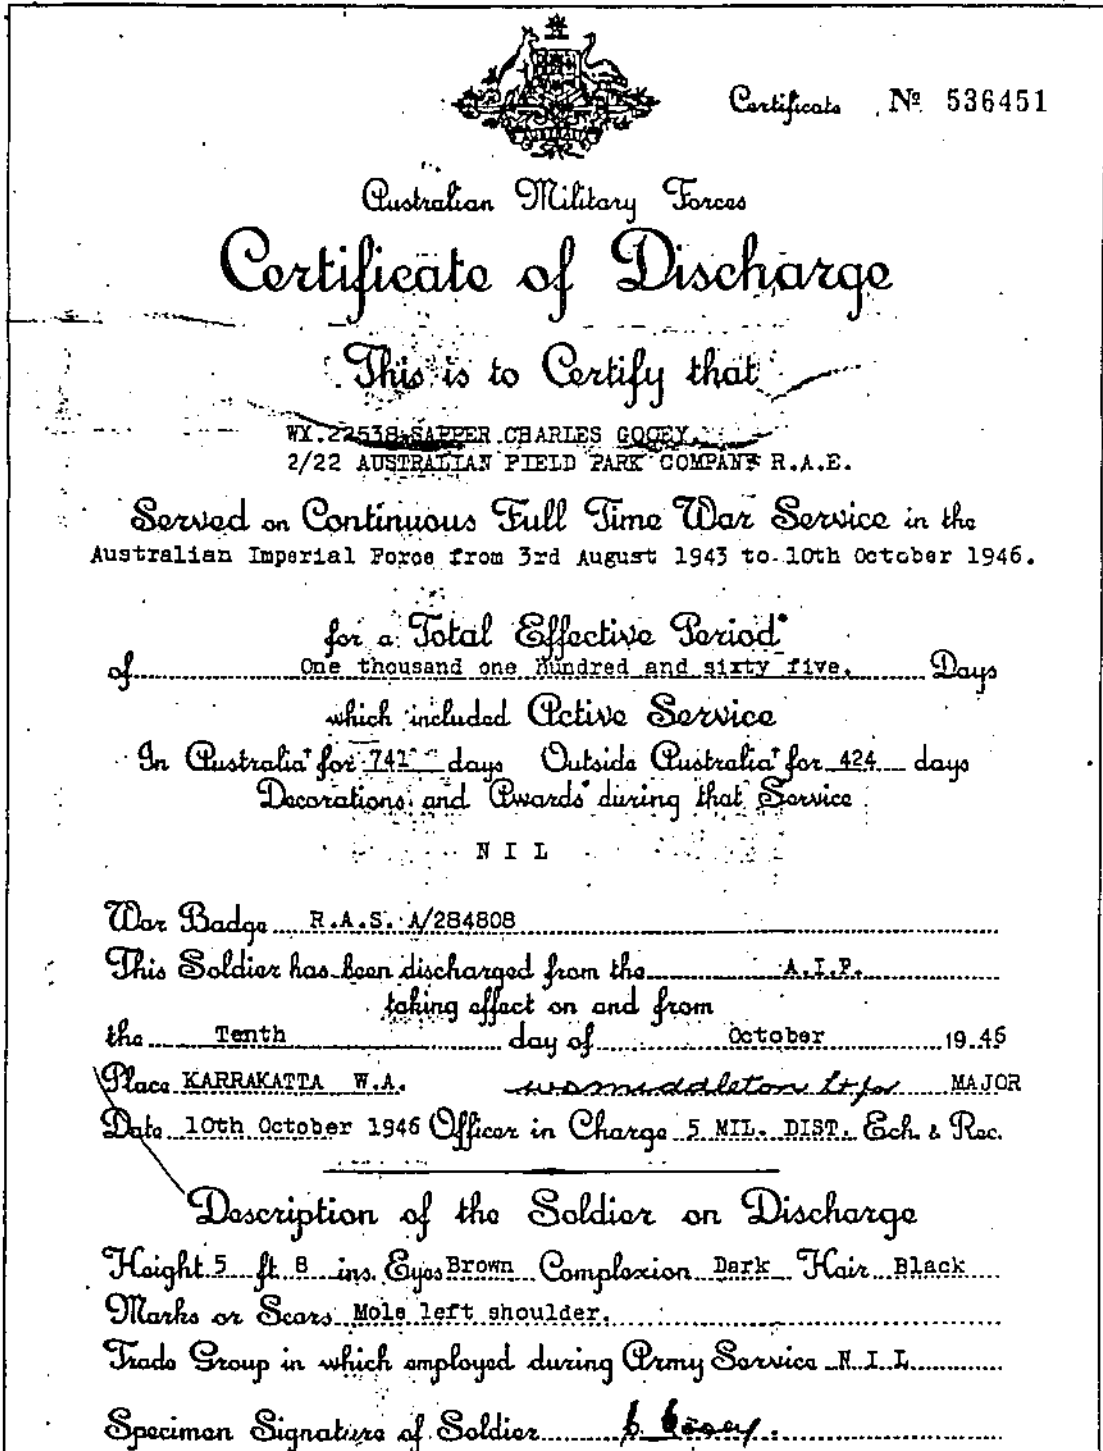 Certificate Nº 536451
Australian Military Forces
Certificate of Discharge
This is to Certify that
WX.22538 SAPPER CHARLES GOOEY.
2/22 AUSTRALIAN FIELD PARK COMPANY R.A.E.
Served on Continuous Full Time War Service in the
Australian Imperial Force from 3rd August 1943 to 10th October 1946.
for a Total Effective Period*
of One thousand one hundred and sixty five. Days
which included Active Service
In Australia† for 741 days Outside Australia† for 424 days
Decorations and Awards* during that Service
N I L
War Badge R.A.S. A/284808
This Soldier has been discharged from the A.I.F.
taking effect on and from
the Tenth day of October 1946
Place KARRAKATTA W.A. MAJOR
Date 10th October 1946 Officer in Charge 5 MIL. DIST. Ech. & Rec.
Description of the Soldier on Discharge
Height 5 ft 8 ins. Eyes Brown Complexion Dark Hair Black
Marks or Scars Mole left shoulder.
Trade Group in which employed during Army Service N I L
Specimen Signature of Soldier C. Gooey.